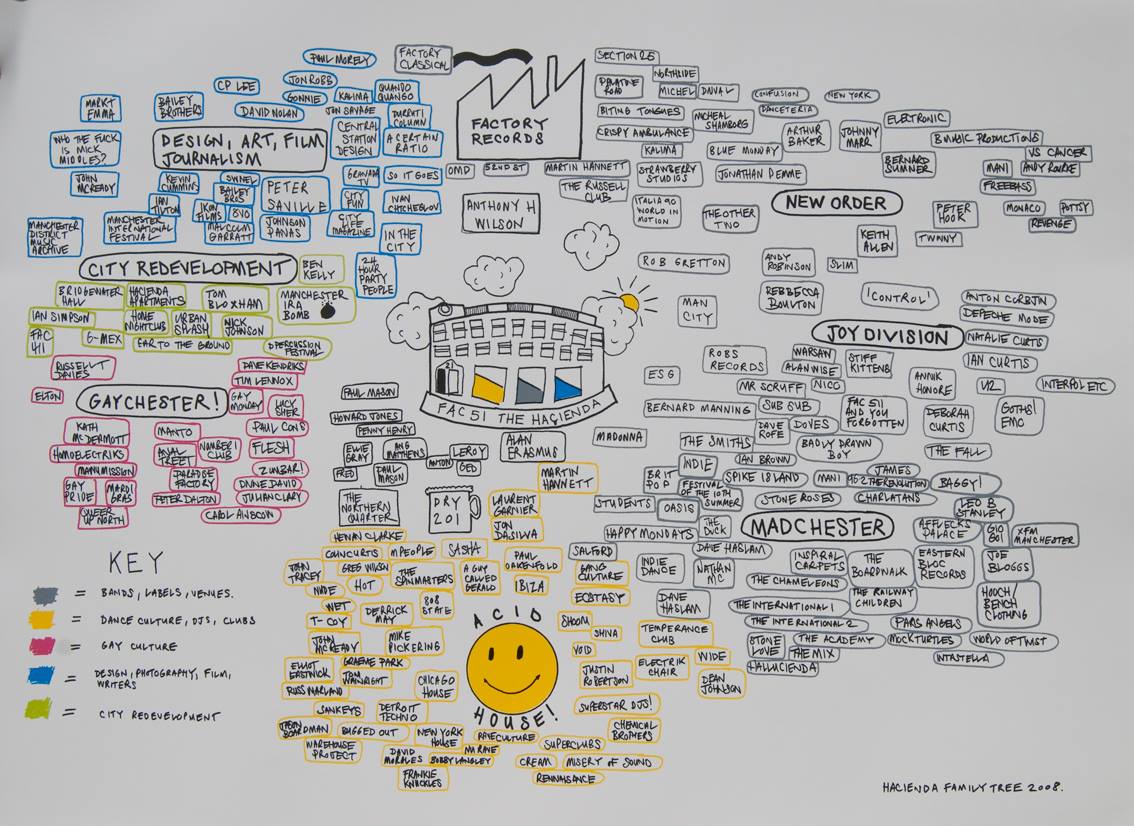 PAUL MORELY
FACTORY
CLASSICAL
CP LEE
JON ROBB
GONNIE
KALIMA
QUANDO
QUANGO
MARK T
EMMA
BAILEY
BROTHERS
DAVID NOLAN
JON SAVAGE
DURUTTI
COLUMN
WHO THE FUCK
IS MICK
MIDDLES?
DESIGN, ART, FILM
JOURNALISM
CENTRAL
STATION
DESIGN
A CERTAIN
RATIO
JOHN
MCREADY
KEVIN
CUMMINS
SWIVEL
BAILEY
BROS
PETER
SAVILLE
GRANADA
TV
SO IT GOES
IAN
TILTON
IKON
FILMS
8VO
MALCOLM
GARRATT
CITY
FUN
IVAN
CHTCHEGLOV
MANCHESTER
DISTRICT
MUSIC
ARCHIVE
MANCHESTER
INTERNATIONAL
FESTIVAL
JOHNSON
PANAS
CITY
LIFE
MAGAZINE
IN THE
CITY
24
HOUR
PARTY
PEOPLE
FACTORY
RECORDS
OMD
52ND ST
MARTIN HANNETT
THE RUSSELL
CLUB
ANTHONY H
WILSON
SECTION 25
NORTHSIDE
PALATINE
ROAD
MICHEL
DUVAL
CONFUSION
NEW YORK
BITING TONGUES
MICHEAL
SHAMBORG
DANCETERIA
ELECTRONIC
CRISPY AMBULANCE
ARTHUR
BAKER
JOHNNY
MARR
B MUSIC PRODUCTIONS
KALIMA
BLUE MONDAY
BERNARD
SUMNER
VS CANCER
MANI
ANDY ROURKE
STRAWBERRY
STUDIOS
JONATHAN DEMME
FREEBASS
ITALIA 90
WORLD IN
MOTION
THE OTHER
TWO
NEW ORDER
PETER
HOOK
MONACO
POTTSY
REVENGE
KEITH
ALLEN
TWINNY
ROB GRETTON
ANDY
ROBINSON
SLIM
REBBECCA
BOULTON
'CONTROL'
ANTON CORBIJN
DEPECHE MODE
MAN
CITY
JOY DIVISION
NATALIE CURTIS
ROBS
RECORDS
WARSAW
ALAN WISE
STIFF
KITTENS
IAN CURTIS
ESG
MR SCRUFF
NICO
ANNIK
HONORE
U2
INTERPOL ETC
BERNARD MANNING
SUB SUB
FAC 511
AND YOU
FORGOTTEN
DEBORAH
CURTIS
GOTHS!
EMC
DAVE
ROFE
DOVES
MADONNA
THE SMITHS
BADLY DRAWN
BOY
THE FALL
INDIE
IAN BROWN
BRIT
POP
FESTIVAL
OF THE 10TH
SUMMER
SPIKE ISLAND
MANI
JAMES
BAGGY!
STUDENTS
OASIS
STONE ROSES
CHARLATANS
LEO B
STANLEY
HAPPY MONDAYS
THE
DUCK
MADCHESTER
AFFLECKS
PALACE
GIO
GOI
XFM
MANCHESTER
CITY REDEVELOPMENT
BEN
KELLY
BRIDGEWATER
HALL
HACIENDA
APARTMENTS
TOM
BLOXHAM
MANCHESTER
IRA
BOMB
IAN SIMPSON
HOME
NIGHTCLUB
URBAN
SPLASH
NICK
JOHNSON
FAC
411
G-MEX
EAR TO THE GROUND
D PERCUSSION
FESTIVAL
FAC 51 THE HAÇIENDA
RUSSELL T
DAVIES
DAVE KENDRICKS
TIM LENNOX
ELTON
GAYCHESTER!
GAY
MONDAY
LUCY
SHER
KATH
MCDERMOTT
HOMOELECTRIKS
MANTO
PAUL CONS
NUMBER 1
CLUB
FLESH
MANUMISSION
PARADISE
FACTORY
ZUMBAR!
GAY
PRIDE
MARDI
GRAS
DIVINE DAVID
PETER DALTON
JULIAN CLARY
QUEER
UP NORTH
CAROL AINSCOW
PAUL MASON
HOWARD JONES
PENNY HENRY
ELLIE
GRAY
ANG
MATTHEWS
LEROY
ALAN
ERASMUS
FRED
PAUL
MASON
ANTON
GED
THE
NORTHERN
QUARTER
DRY
201
MARTIN
HANNETT
LAURENT
GARNIER
JON
DASILVA
HEWAN CLARKE
COLIN CURTIS
M PEOPLE
SASHA
PAUL
OAKENFOLD
JOHN
TRACEY
GREG WILSON
THE
SPINMASTERS
A GUY
CALLED
GERALD
IBIZA
NUDE
HOT
WET
DERRICK
MAY
808
STATE
T-COY
JOHN
MCREADY
MIKE
PICKERING
ELLIOT
EASTWICK
GRAEME PARK
TOM
WAINWRIGHT
RUSS MARLAND
CHICAGO
HOUSE
SANKEYS
DETROIT
TECHNO
JASON
BOARDMAN
BUGGED OUT
NEW YORK
HOUSE
RAVE CULTURE
WAREHOUSE
PROJECT
DAVID
MORALES
NU RAVE
BOBBY LANGLEY
FRANKIE
KNUCKLES
SUPERCLUBS
CREAM
MISERY OF SOUND
RENNAISANCE
ACID
HOUSE!
SALFORD
GANG
CULTURE
ECSTASY
SHOOM
SHIVA
VOID
JUSTIN
ROBERTSON
SUPERSTAR DJS!
CHEMICAL
BROTHERS
TEMPERANCE
CLUB
ELECTRIK
CHAIR
WIDE
DEAN
JOHNSON
INDIE
DANCE
DAVE HASLAM
NATHAN
MC
DAVE
HASLAM
INSPIRAL
CARPETS
THE
BOARDWALK
EASTERN
BLOC
RECORDS
JOE
BLOGGS
THE CHAMELEONS
THE RAILWAY
CHILDREN
HOOCH/
BENCH
CLOTHING
THE INTERNATIONAL 1
THE INTERNATIONAL 2
PARIS ANGELS
STONE
LOVE
THE ACADEMY
MOCK TURTLES
WORLD OF TWIST
THE MIX
HALLUCIENDA
INTASTELLA
KEY
= BANDS, LABELS, VENUES.
= DANCE CULTURE, DJS, CLUBS
= GAY CULTURE
= DESIGN, PHOTOGRAPHY, FILM,
WRITERS
= CITY REDEVELOPMENT
HACIENDA FAMILY TREE 2008.